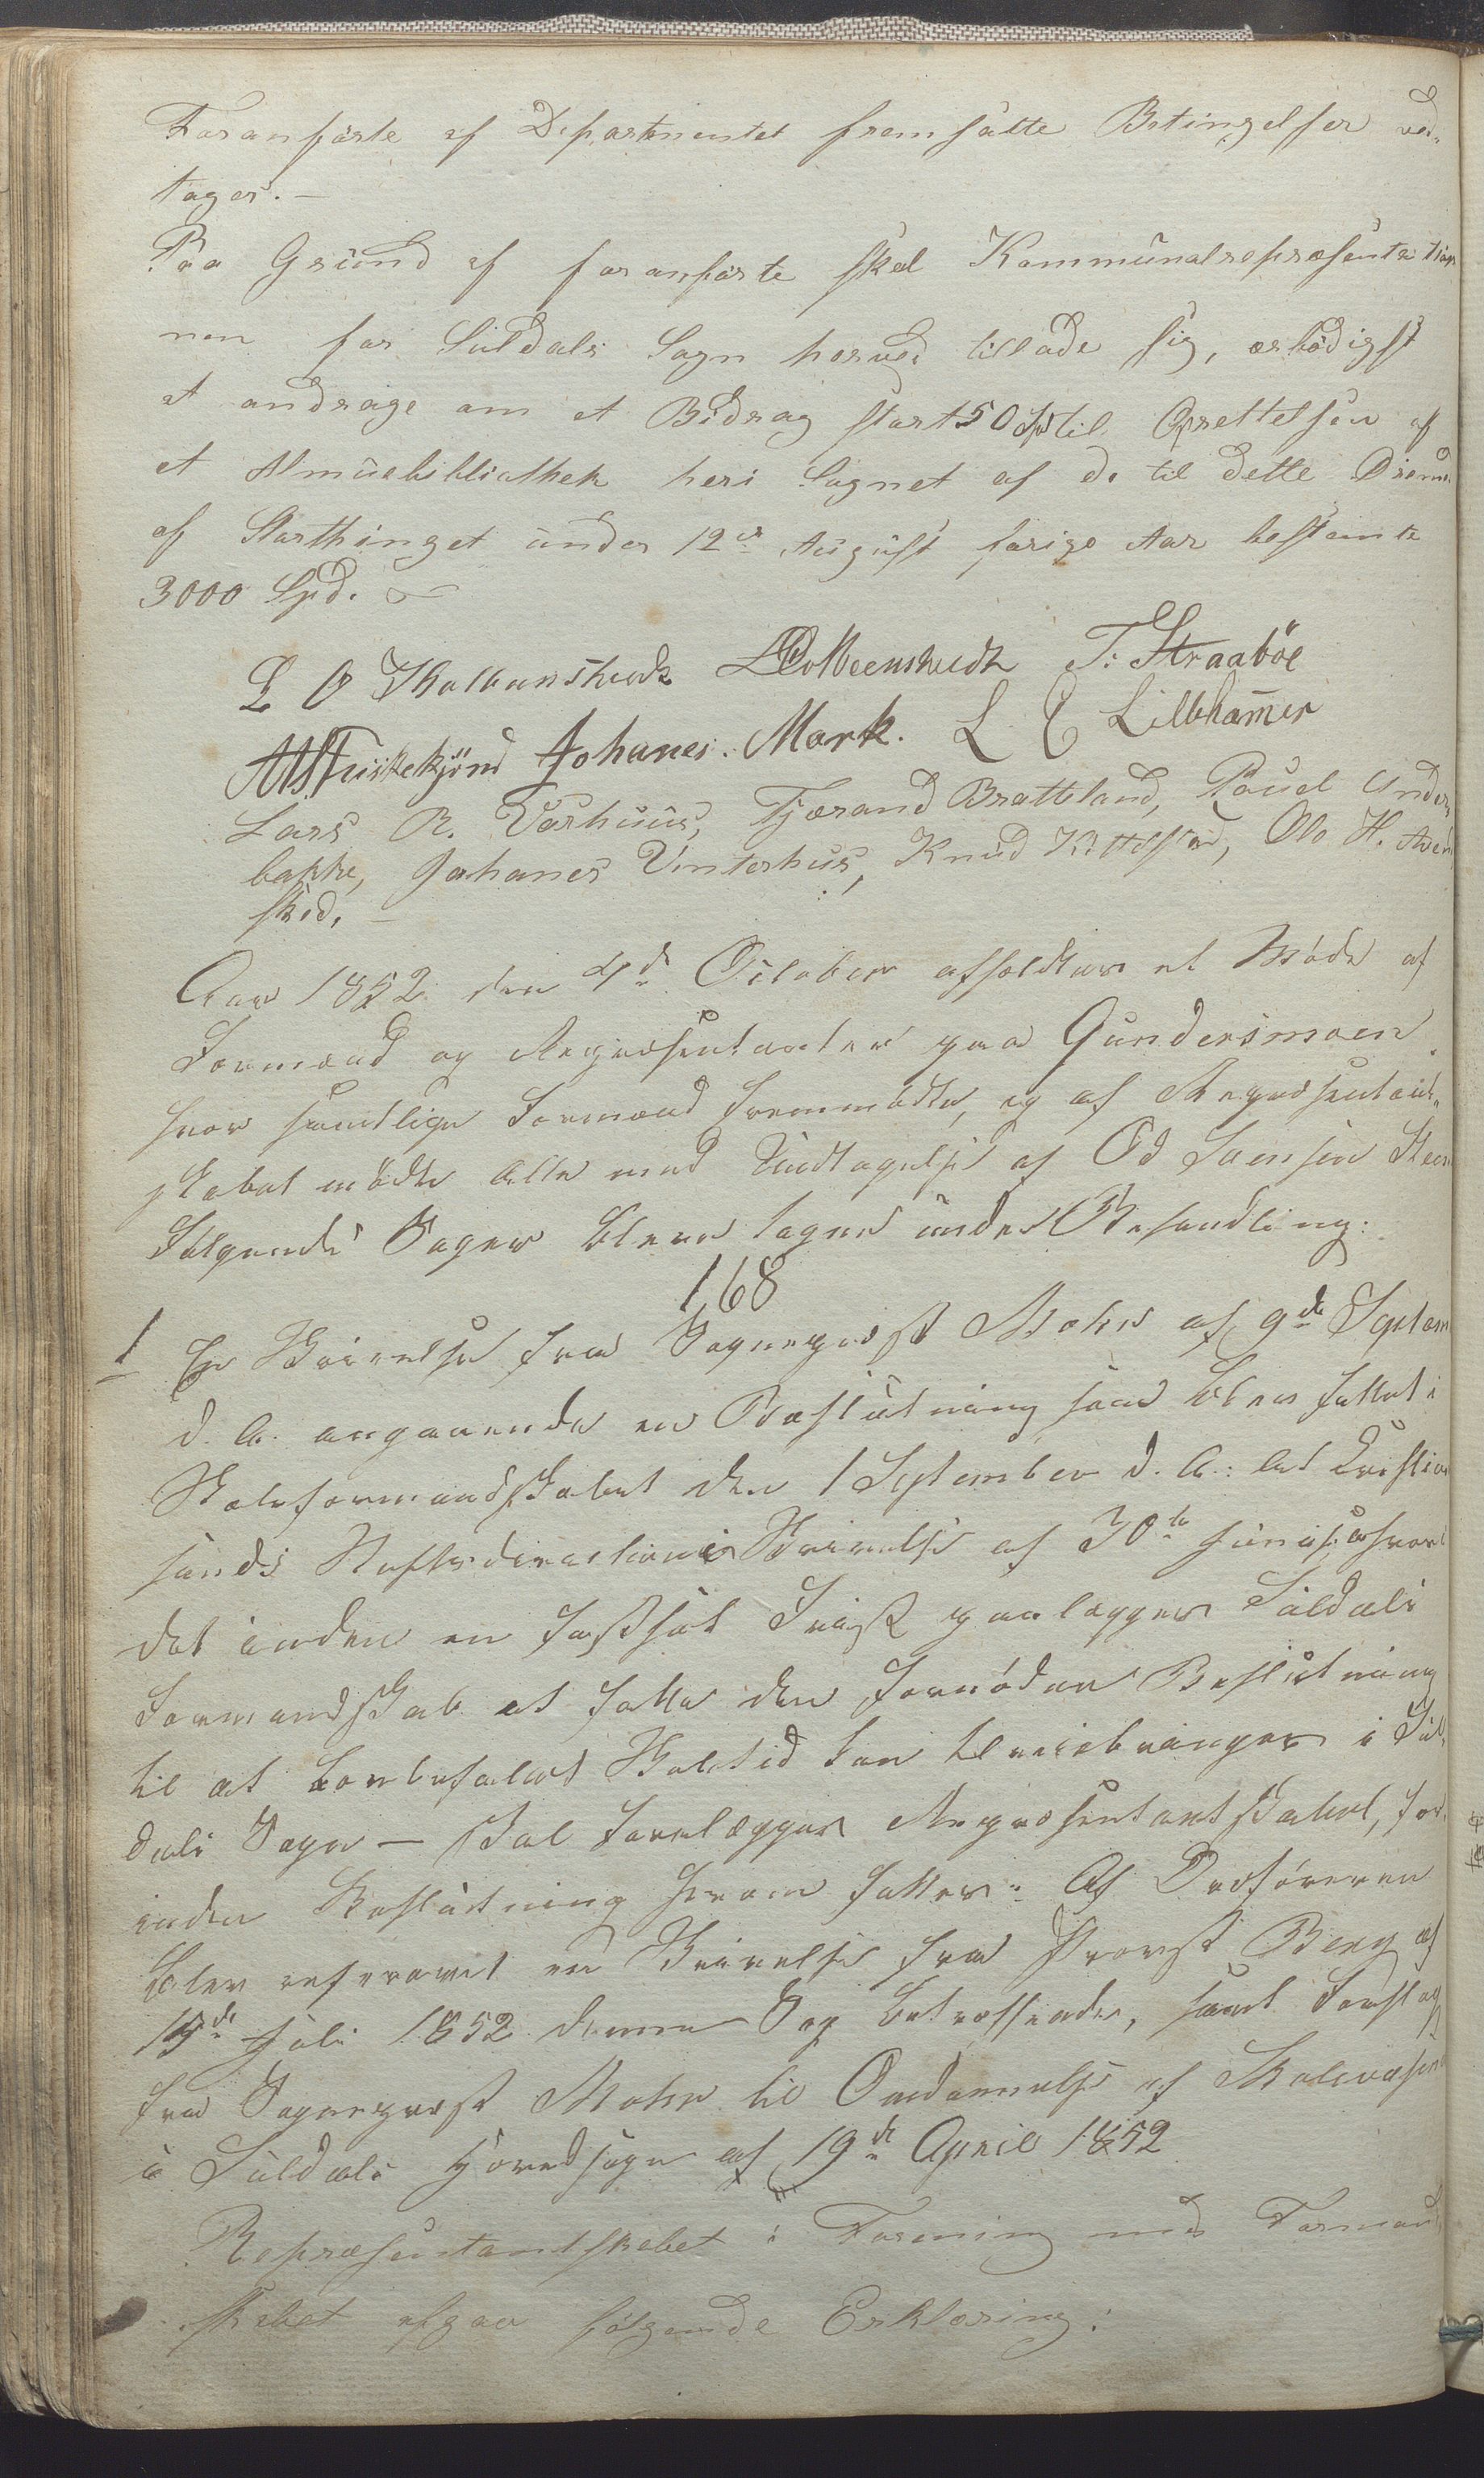 Foranførte af Departementet fremsatte Betingelser ved-
tages. –
Paa Grund af foranførte skal Kommunalrepræsentatio
nen for Suldals Sogn herved tillade sig, ærbødigst
at andrage om et Bidrag stort 50 Spd til Oprettelsen af
et Almuebibliothek her i Sognet af de til dette Øiemed
af Storthinget under 12te August forige Aar bestemte
3000 Spd.
L O Kolbenstvedt T. Straabøe
Fiskekjönd Johanes. Mork. L E Lillehamer
Lars R. Vaarhuus, Tjærand Bratteland, Poul Anders
bakke, Johanes Vinterhus, Knud Kittelstad, Ole H.
Aar 1852 den 4de October afholdtes et Møde af
Formænd og Repræsentanter paa Gundersmoen
hvor samtlige Formænd fremmødte, og af Repræsentant-
skabet mødte Alle med Undtagelse af Od Svensen Steen
Følgende Sager bleve tagne under Behandling:
168
1 En Skrivelse fra Sognepræst Mohr af 9de Septem
d. A. angaaende en Beslutning som blev fattet i
Skoleformandskabet den 1 September d. A.: At Christian
sands Stiftsdirections Skrivelse af 30te Juni hvori
det inden en fastsat Frist paalægges Suldals
Formandskab at fatte den fornødne Beslutning
til at lovbefalet Skoletid kan tilveiebringes i Sul-
dals Sogn – skal forelægges Repræsentantskabet, for-
inden Beslutning herom fattes. Af Ordføreren
blev refereret en Skrivelse fra Provst Berg af
15de Juli 1852 denne Sag betræffende, samt Forslag
fra Sognepræst Mohr til Omdannelse af Skolevæsenet
i Suldals Hovedsogn af 19de April 1852
Repræsentantskabet i Forening med Formand
skabet afgav følgende Erklæring: